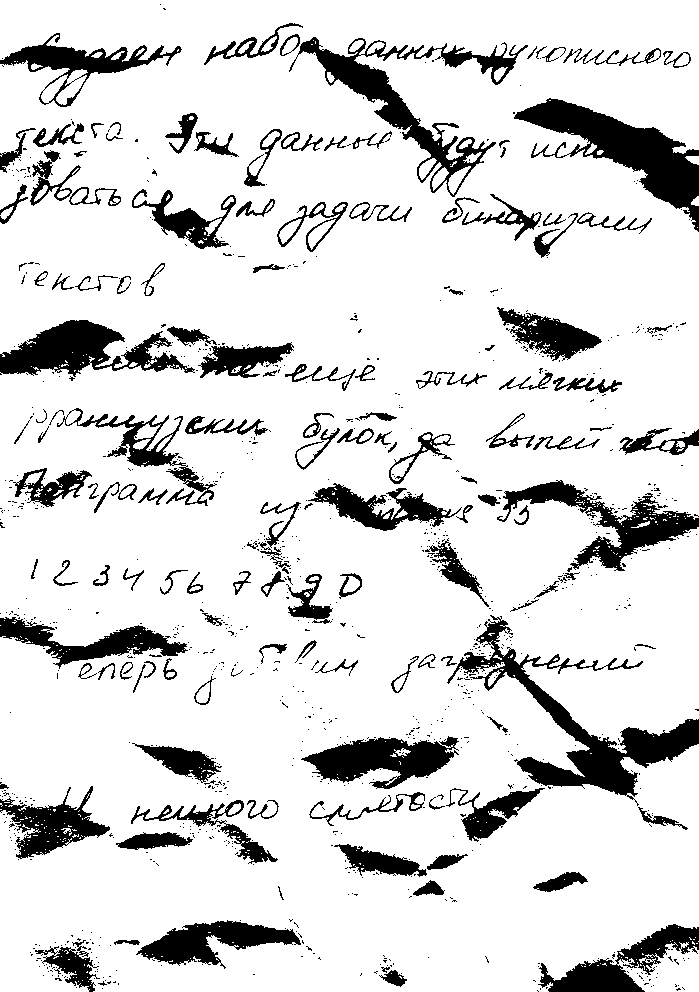 Создаем набор данных рукописного
текста. Эти данные будут исполь
зоваться для задачи бинаризации
текстов
же ещё этих мягких
французских булок, да выпей чаю
Панграмма из 33
1 2 3 4 5 6 7 8 9 0
Теперь добавим загрязнений
И немного смятости